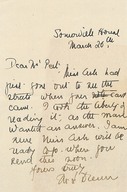 Somerville House
March 20th
Dear Mr Peet.
Miss Ash had
just gone out to see the
streets when your note
came. I took the liberty of
reading it; as the man
wanted an answer, I am
sure Miss Ash will be
ready for
you when you
this soon.
Yours truly